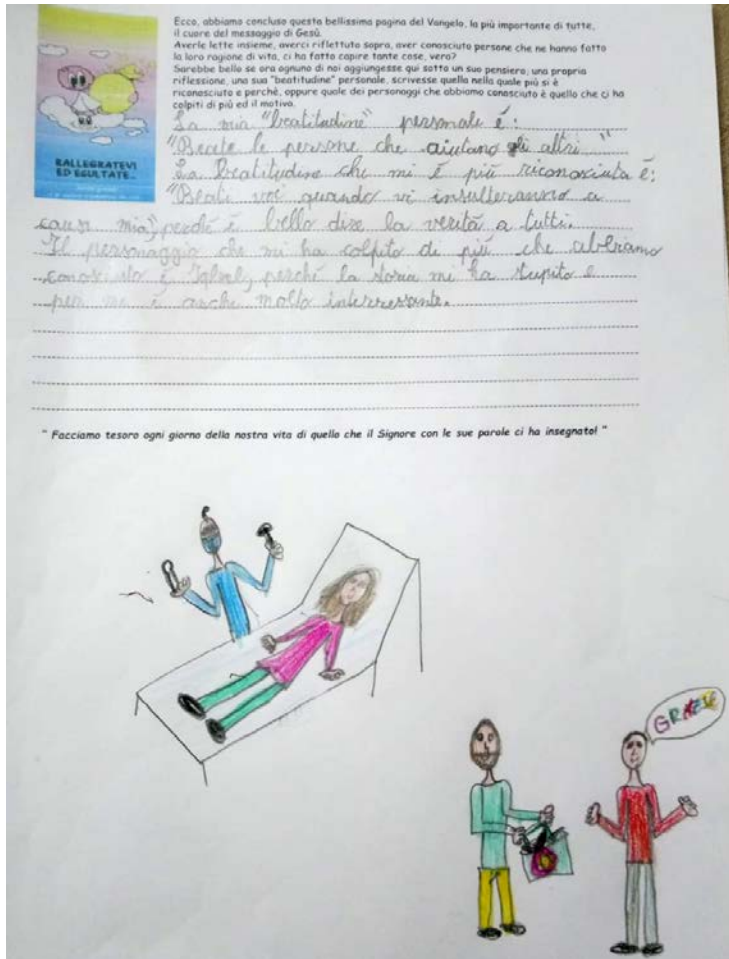 Ecco, abbiamo concluso questa bellissima pagina del Vangelo, la più importante di tutte,
il cuore del messaggio di Gesù.
Averle lette insieme, averci riflettuto sopra, aver conosciuto persone che ne hanno fatto
la loro ragione di vita, ci ha fatto capire tante cose, vero?
Sarebbe bello se ora ognuno di noi aggiungesse qui sotto un suo pensiero, una propria
riflessione, una sua "beatitudine" personale, scrivesse quella nella quale più si è
riconosciuto e perchè, oppure quale dei personaggi che abbiamo conosciuto è quello che ci ha
colpiti di più ed il motivo.
RALLEGRATEVI
ED ESULTATE..
La mia "beatitudine" personale è:
"Beate le persone che aiutano gli altri"
La beatitudine che mi è più riconosciuta è:
"Beati voi quando vi insulteranno a
causa mia", perché è bello dire la verità a tutti.
Il personaggio che mi ha colpito di più che abbiamo
conosciuto è Iqbal, perché la storia mi ha stupito e
per me è anche molto interessante.
" Facciamo tesoro ogni giorno della nostra vita di quello che il Signore con le sue parole ci ha insegnato! "
GRAZIE